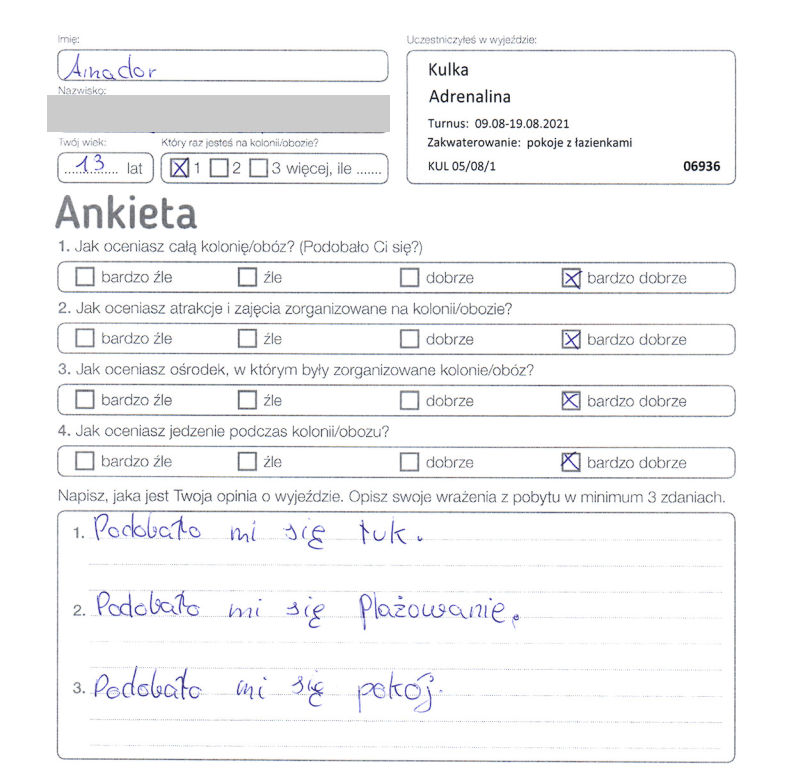 Imię:
Amador
Nazwisko:
Twój wiek:
13 lat
Który raz jesteś na kolonii/obozie?
1 2 3 więcej, ile .......
Uczestniczyłeś w wyjeździe:
Kulka
Adrenalina
Turnus: 09.08-19.08.2021
Zakwaterowanie: pokoje z łazienkami
KUL 05/08/1 06936
Ankieta
1. Jak oceniasz całą kolonię/obóz? (Podobało Ci się?)
bardzo źle źle dobrze bardzo dobrze
2. Jak oceniasz atrakcje i zajęcia zorganizowane na kolonii/obozie?
bardzo źle źle dobrze bardzo dobrze
3. Jak oceniasz ośrodek, w którym były zorganizowane kolonie/obóz?
bardzo źle źle dobrze bardzo dobrze
4. Jak oceniasz jedzenie podczas kolonii/obozu?
bardzo źle źle dobrze bardzo dobrze
Napisz, jaka jest Twoja opinia o wyjeździe. Opisz swoje wrażenia z pobytu w minimum 3 zdaniach.
1. Podobało mi się łuk.
2. Podobało mi się Plażowanie.
3. Podobało mi się pokój.